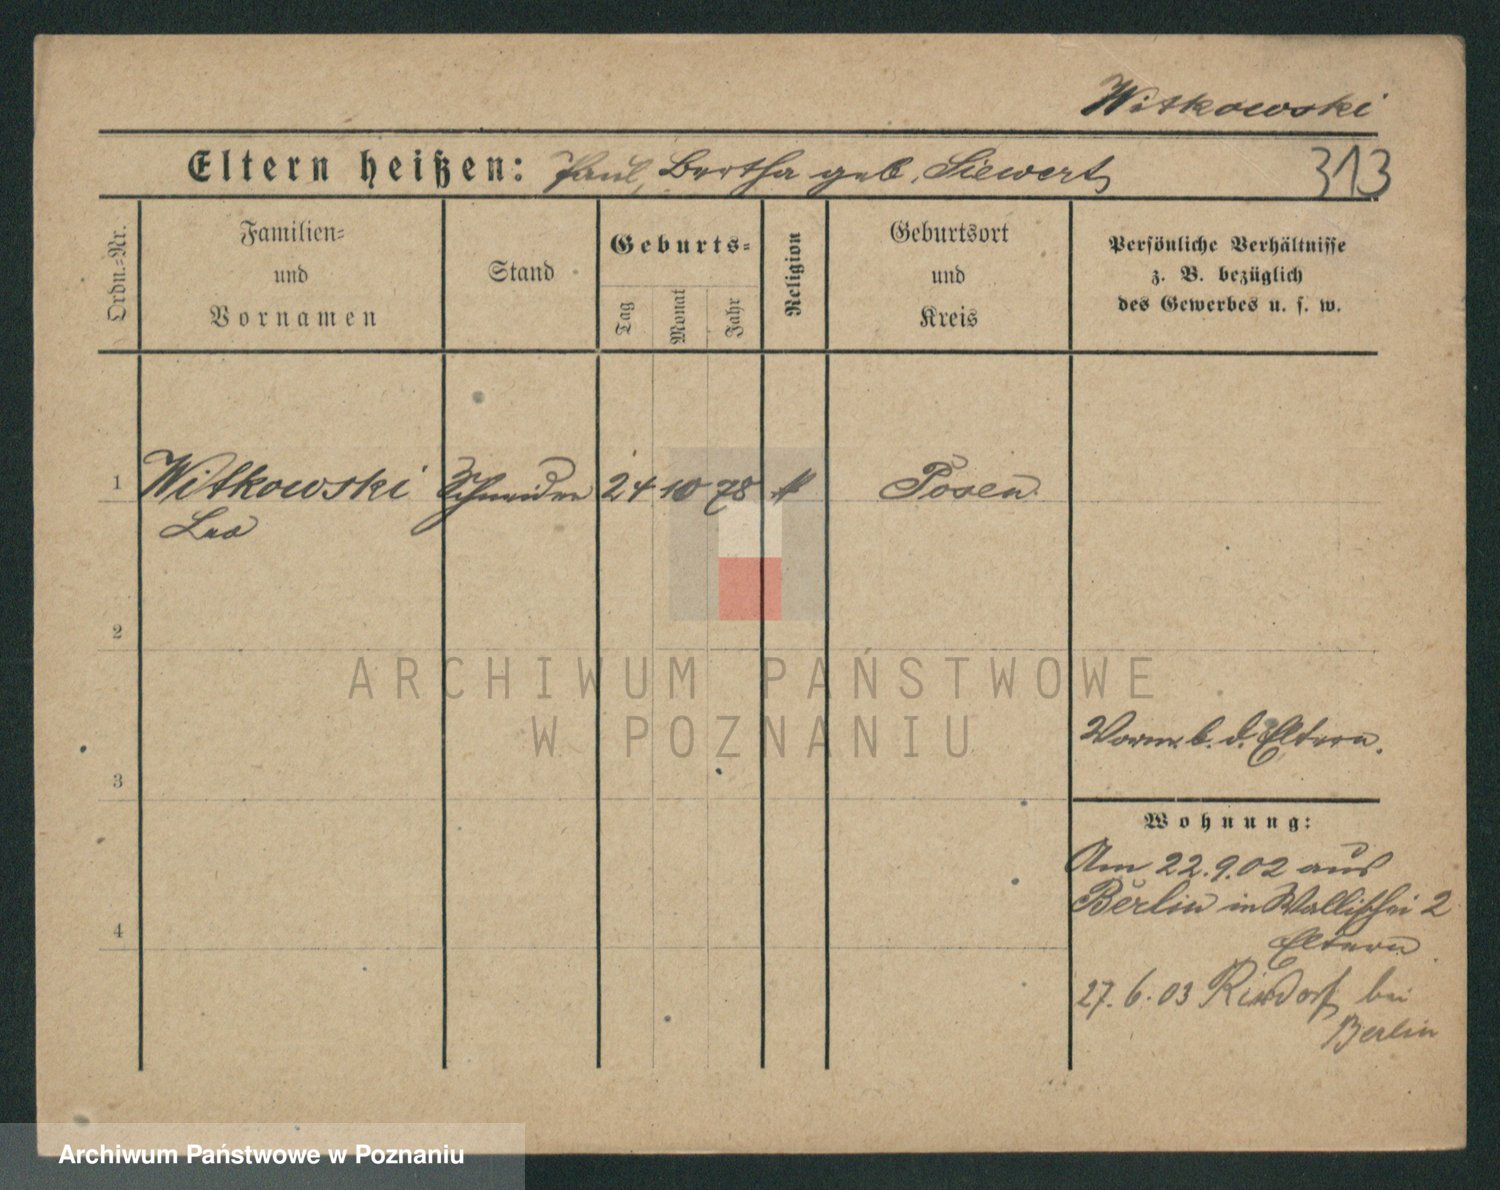 Witkowski
Eltern heißen: Paul, Bertha geb. Siewert
313
Ordn.=Nr.
Familien=
und
Vornamen
Stand
Geburts=
Tag
Monat
Jahr
Religion
Geburtsort
und
Kreis
Persönliche Verhältnisse
z. B. bezüglich
des Gewerbes u. s. w.
1 Witkowski Schneider 24 10 78 Posen
Leo
2
3
4
Vorm. b. d. Eltern.
Wohnung:
Am 22.9.02 aus
Berlin in Wallischei 2
Eltern
27.6.03 Rixdorf bei
Berlin
ARCHIWUM PAŃSTWOWE
W POZNANIU
Archiwum Państwowe w Poznaniu